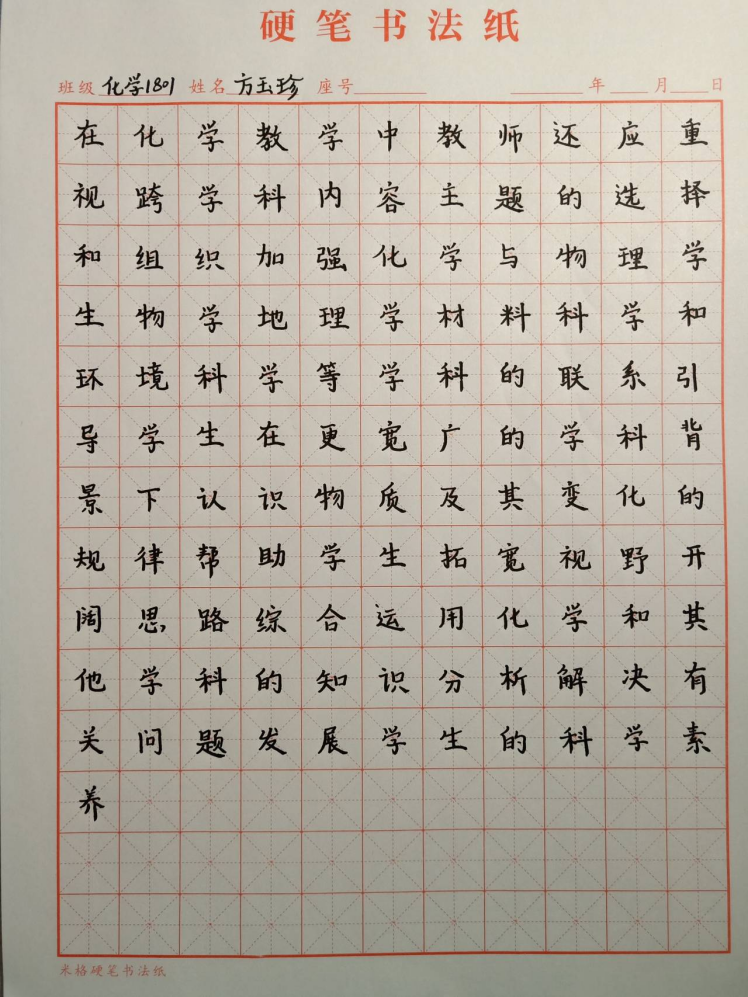 硬笔书法纸
班级 化学1801 姓名 方玉珍 座号 年 月 日
在化学教学中教师还应重
视跨学科内容主题的选择
和组织加强化学与物理学
生物学地理学材料科学和
环境科学等学科的联系引
导学生在更宽广的学科背
景下认识物质及其变化的
规律帮助学生拓宽视野开
阔思路综合运用化学和其
他学科的知识分析解决有
关问题发展学生的科学素
养
米格硬笔书法纸